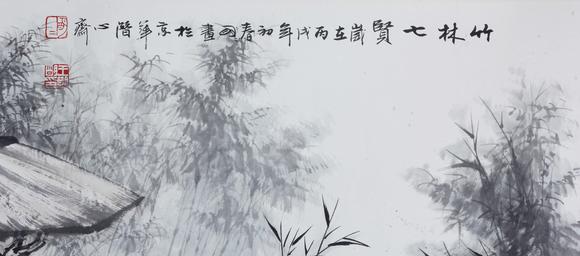 竹林七賢歲在丙戌年初春畫於京華潛心齋